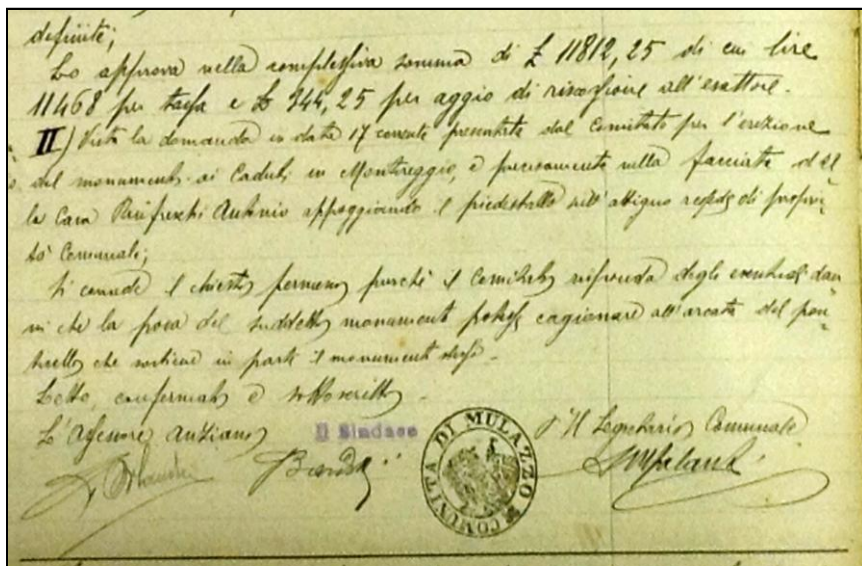 definite;
Lo approva nella complessiva somma di £ 11812,25 di cui lire
11468 per tassa e £ 344,25 per aggio di riscossione all'esattore.
II) Vista la domanda in data 17 corrente presentata dal Comitato per l'erezione
del monumento ai Caduti in Montereggio, e precisamente nella facciata del
la Casa Antonio appoggiando il piedestallo sull'attiguo di proprie
tà Comunale;
Si concede il chiesto permesso purchè il Comitato risponda degli eventuali dan
ni che la posa del suddetto monumento potesse cagionare all'arcata del pon
ticello che sostiene in parte il monumento stesso.
Letto, confermato e sottoscritto.
L'Assessore Anziano Il Sindaco Il Segretario Comunale
COMUNITÀ DI MULAZZO